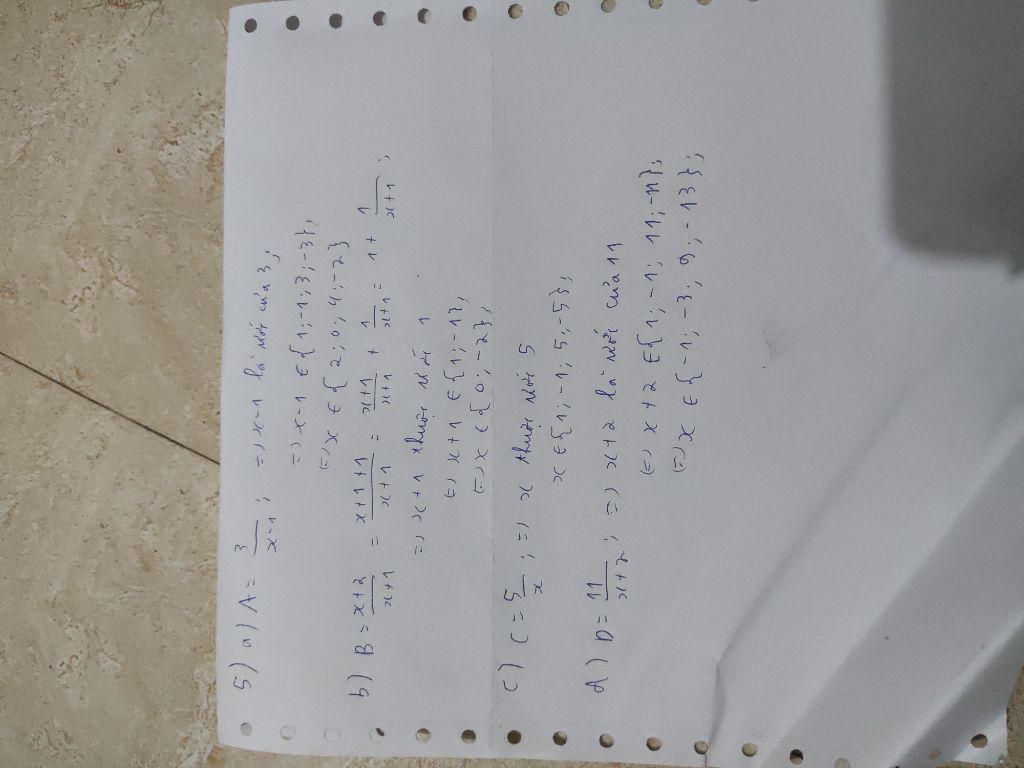 5) a) A = \frac{3}{x-1}; => x-1 là ước của 3;
=> x-1 ∈ {1; -1; 3; -3};
(=) x ∈ {2; 0; 4; -2}
b) B = \frac{x+2}{x+1} = \frac{x+1+1}{x+1} = \frac{x+1}{x+1} + \frac{1}{x+1} = 1 + \frac{1}{x+1};
=> x+1 thuộc ước 1
(=) x+1 ∈ {1; -1};
(=) x ∈ {0; -2};
c) C = \frac{5}{x}; => x thuộc ước 5
x ∈ {1; -1; 5; -5};
d) D = \frac{11}{x+2}; => x+2 là ước của 11
(=) x+2 ∈ {1; -1; 11; -11};
(=) x ∈ {-1; -3; 9; -13};